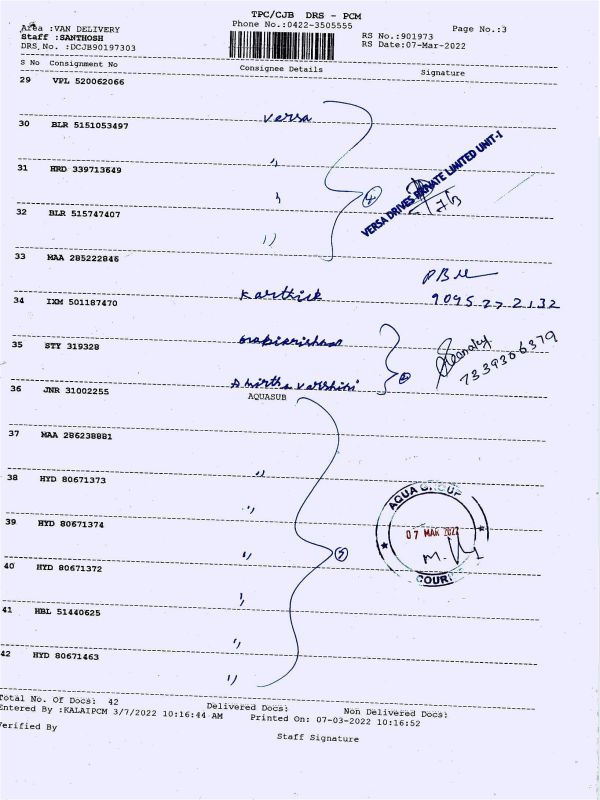 TPC/CJB DRS - PCM
Area :VAN DELIVERY
Phone No.:0422-3505555
Page No.:3
Staff :SANTHOSH
RS No.:901973
DRS, No. :DCJB90197303
RS Date:07-Mar-2022
S No Consignment No
Consignee Details
Signature
29 VPL 520062066
Versa
30 BLR 5151053497
"
31 HRD 339713649
"
VERSA DRIVES PRIVATE LIMITED UNIT-1
32 BLR 515747407
"
33 MAA 285222846
Karthick
9095272132
34 IXM 501187470
35 STY 319328
7339306379
36 JNR 31002255
AQUASUB
37 MAA 286238881
"
38 HYD 80671373
"
AQUA GROUP
39 HYD 80671374
07 MAR 2022
"
40 HYD 80671372
"
41 HBL 51440625
"
42 HYD 80671463
"
Total No. Of Docs: 42
Delivered Docs:
Non Delivered Docs:
Entered By :KALAIPCM 3/7/2022 10:16:44 AM
Printed On: 07-03-2022 10:16:52
Verified By
Staff Signature